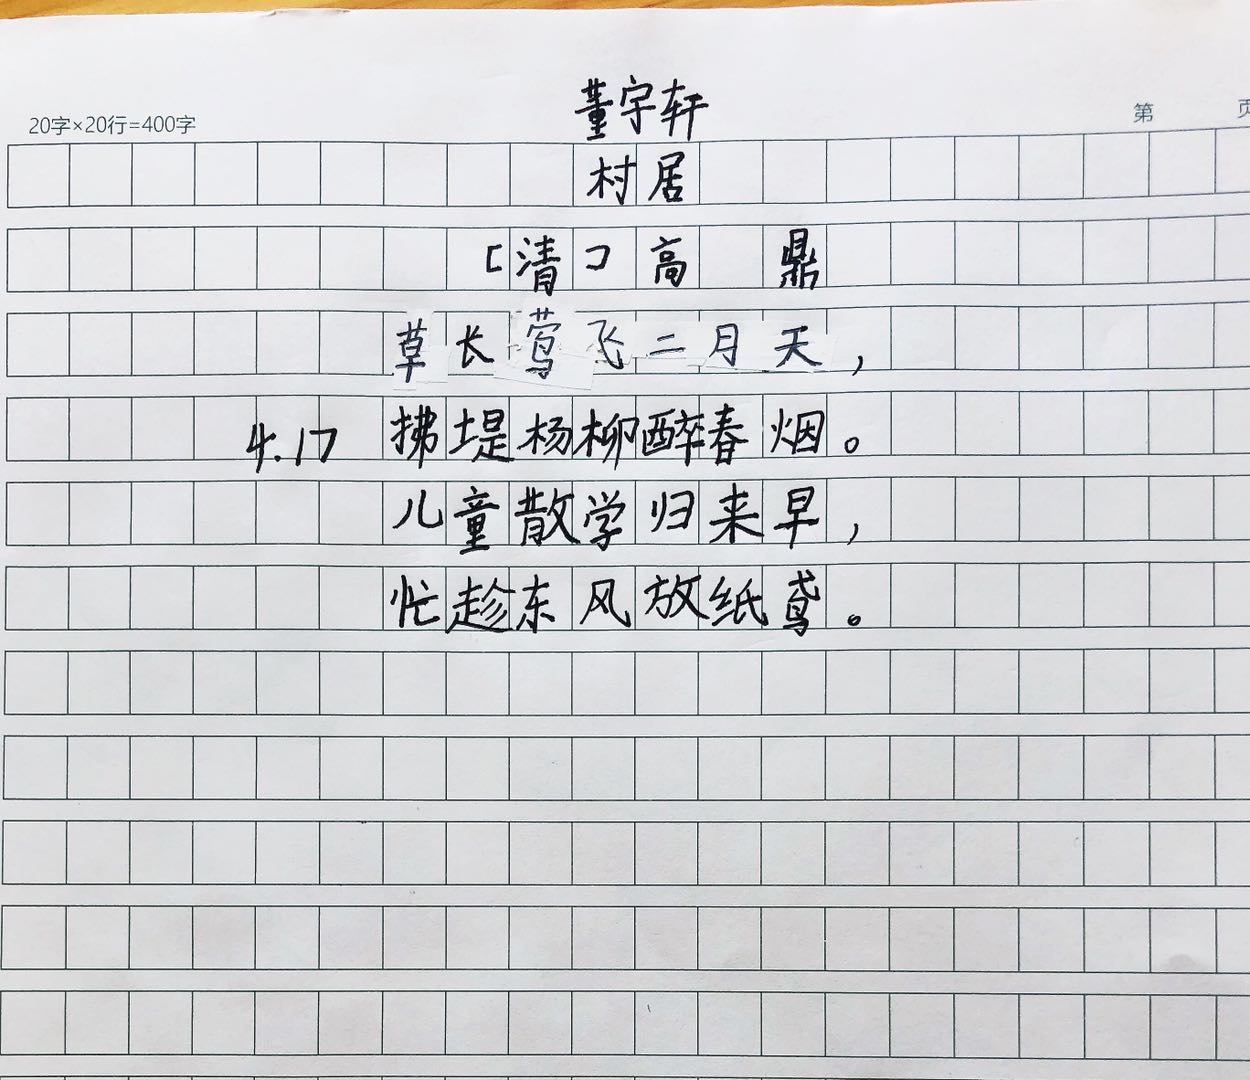 董宇轩
20字×20行=400字 第 页
村居
[清]高 鼎
草长莺飞二月天，
4.17 拂堤杨柳醉春烟。
儿童散学归来早，
忙趁东风放纸鸢。